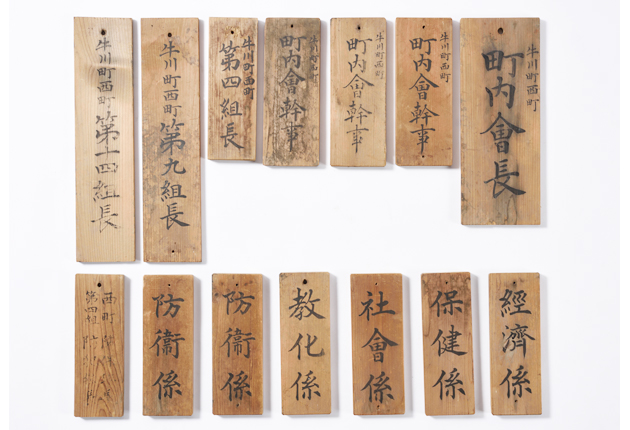 牛川町西町
町内會長
牛川町西町
町内會幹事
牛川町西町
町内會幹事
牛川町西町
町内會幹事
牛川町西町
第四組長
牛川町西町第九組長
牛川町西町第十四組長
經濟係
保健係
社會係
教化係
防衞係
防衞係
西町
第四組